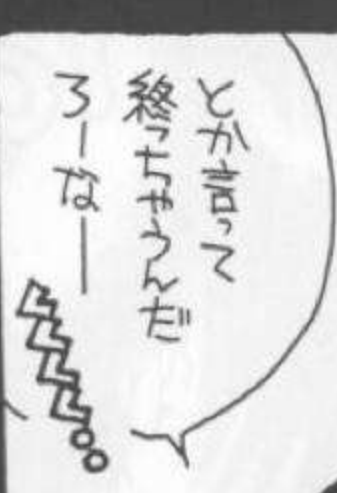 とか言って
終っちゃうんだ
ろーなー